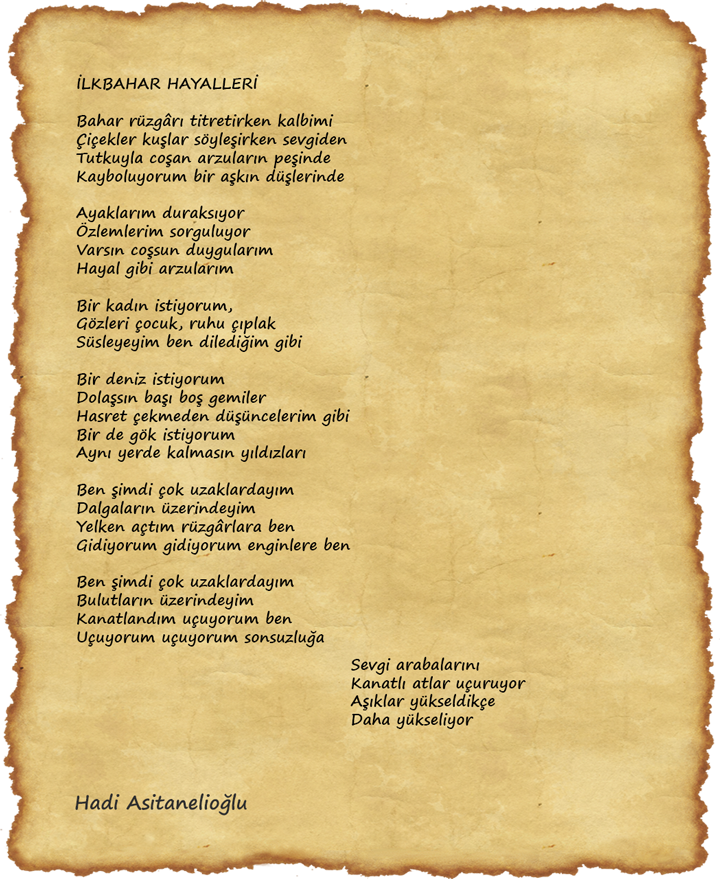 İLKBAHAR HAYALLERİ
Bahar rüzgârı titretirken kalbimi
Çiçekler kuşlar söyleşirken sevgiden
Tutkuyla coşan arzuların peşinde
Kayboluyorum bir aşkın düşlerinde
Ayaklarım duraksıyor
Özlemlerim sorguluyor
Varsın coşsun duygularım
Hayal gibi arzularım
Bir kadın istiyorum,
Gözleri çocuk, ruhu çıplak
Süsleyeyim ben dilediğim gibi
Bir deniz istiyorum
Dolaşsın başı boş gemiler
Hasret çekmeden düşüncelerim gibi
Bir de gök istiyorum
Aynı yerde kalmasın yıldızları
Ben şimdi çok uzaklardayım
Dalgaların üzerindeyim
Yelken açtım rüzgârlara ben
Gidiyorum gidiyorum enginlere ben
Ben şimdi çok uzaklardayım
Bulutların üzerindeyim
Kanatlandım uçuyorum ben
Uçuyorum uçuyorum sonsuzluğa
Sevgi arabalarını
Kanatlı atlar uçuruyor
Aşıklar yükseldikçe
Daha yükseliyor
Hadi Asitanelioğlu